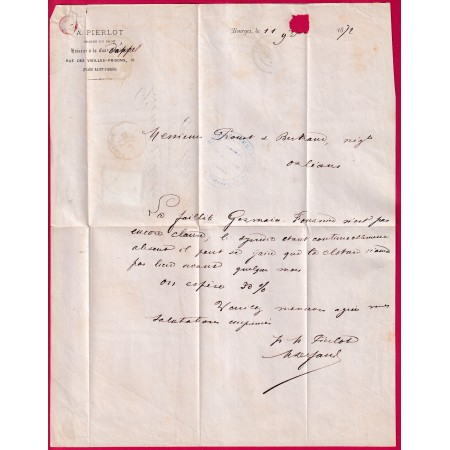 A. PIERLOT
Huissier à la Cour d'appel
RUE DES VIEILLES-PRISONS,
Bourges, le 11 9bre 1872
Monsieur Proust & Bertrand, négt
Orléans
La faillite Germain Fournier n'est pas
encore clause, le syndic étant continuellement
absent il peut se faire que la cloture n'aura
pas lieu avant quelques mois
on espère 30 %
Veuillez messieurs agréer mes
salutations empressées
p. p. Pierlot